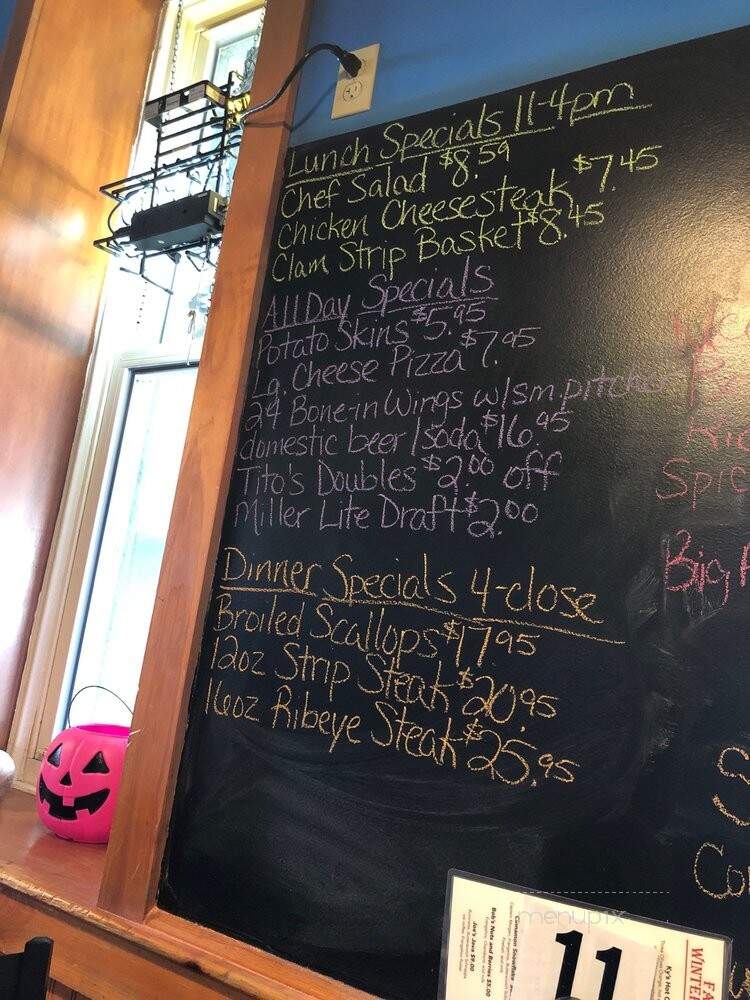 Lunch Specials 11-4pm
Chef Salad $8.59
Chicken Cheesesteak $7.45
Clam Strip Basket $8.45
All Day Specials
Potato Skins $5.95
Lg. Cheese Pizza $7.95
24 Bone-in Wings w/sm.pitcher
domestic beer/soda $16.95
Tito's Doubles $2.00 off
Miller Lite Draft $2.00
Dinner Specials 4-close
Broiled Scallops $17.95
12oz Strip Steak $20.95
16oz Ribeye Steak $25.95
Big
11
Cinnamon Snowflake
Bob's Nuts and Berries $5.00
Joe's Java $9.00
Ky's Hot
menupix